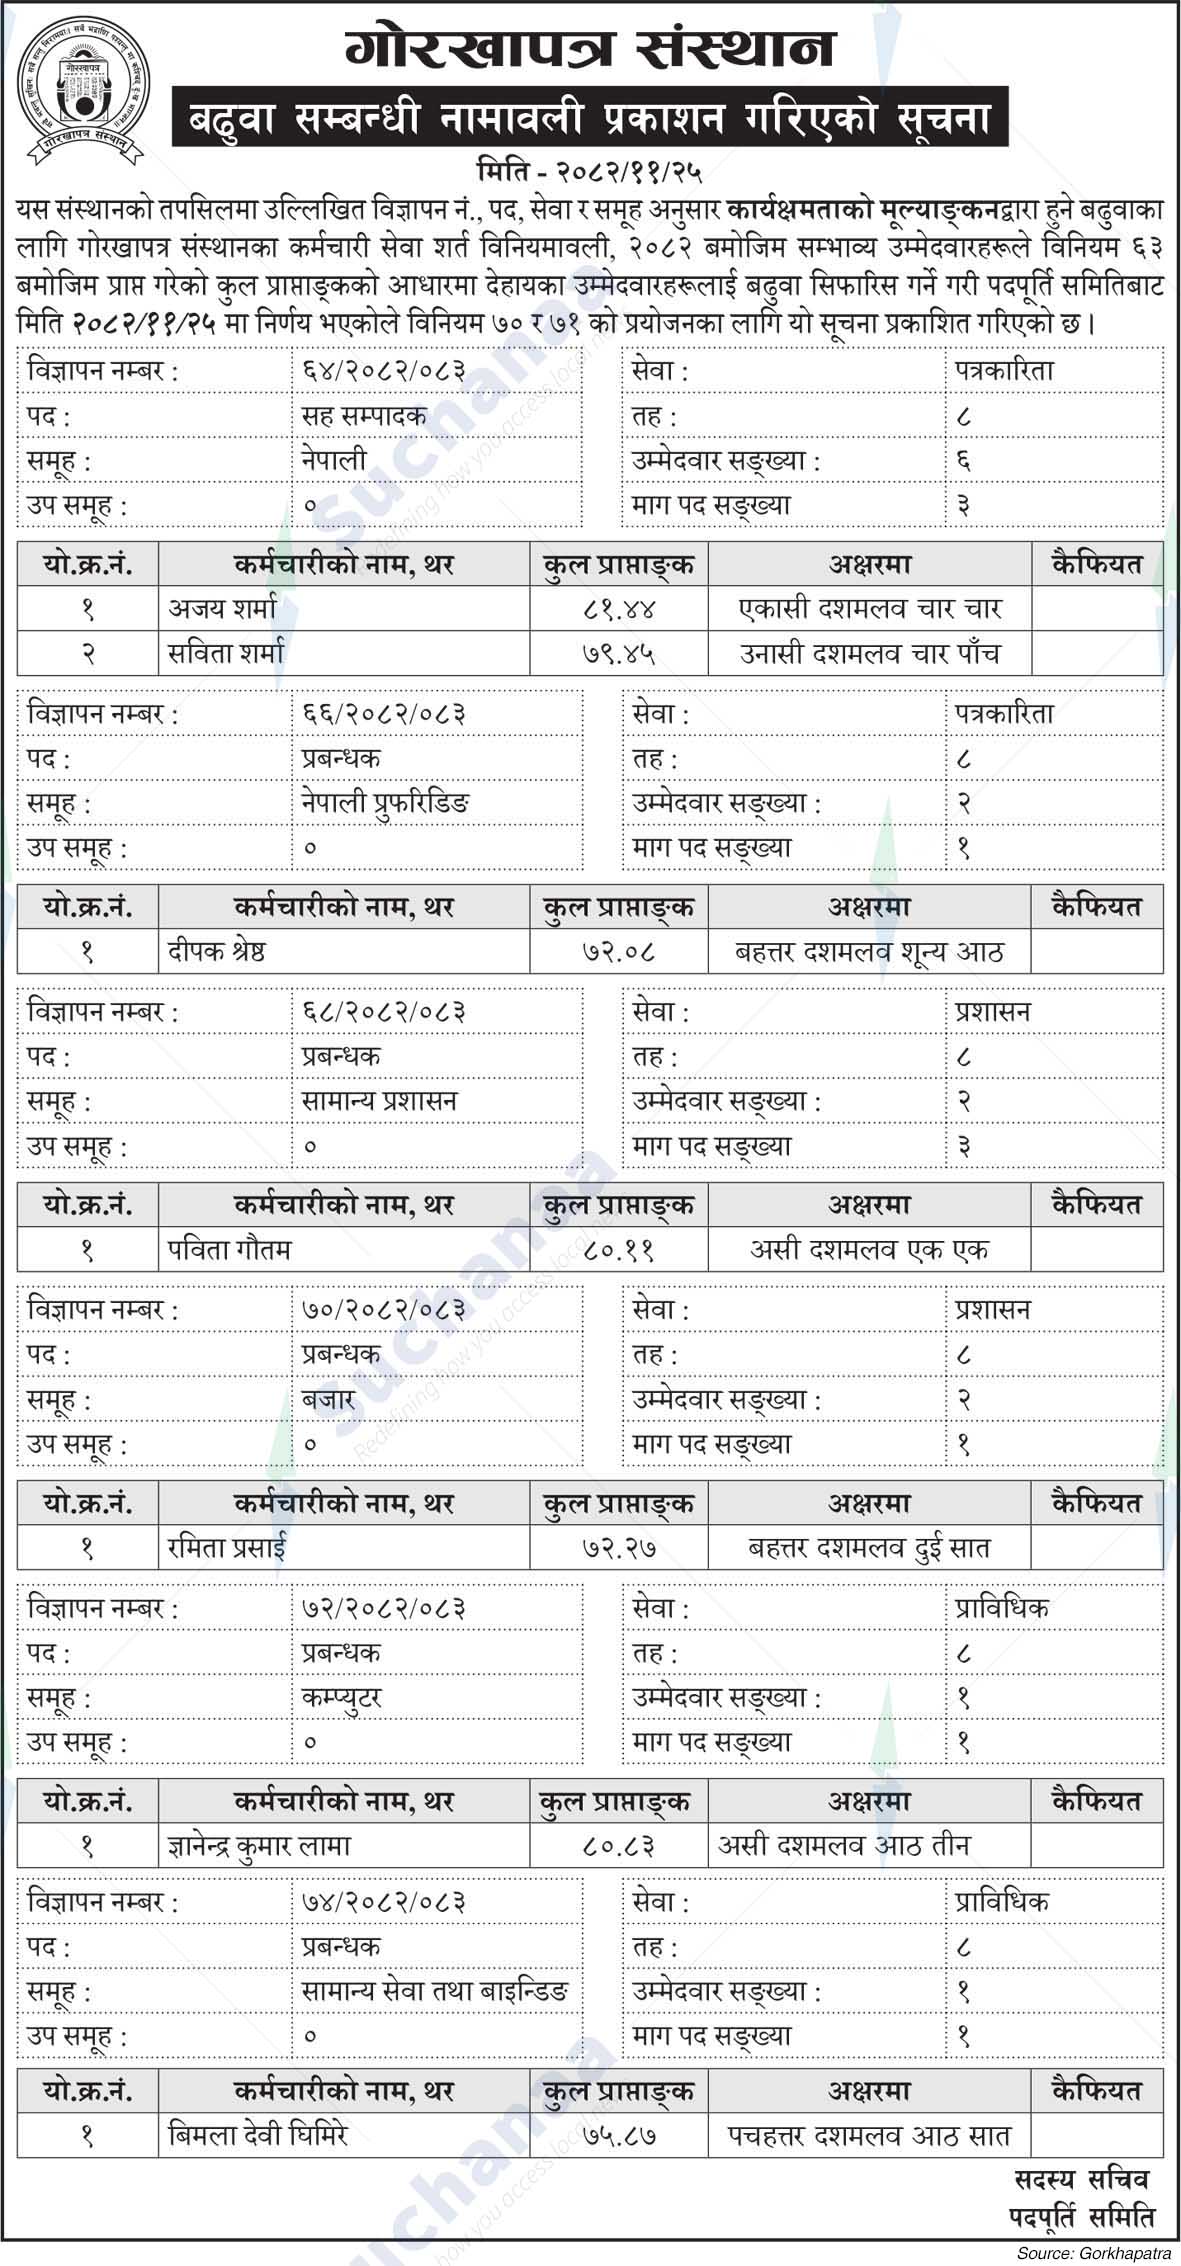 गोरखापत्र संस्थान
बढुवा सम्बन्धी नामावली प्रकाशन गरिएको सूचना
मिति - २०८२/११/२५
यस संस्थानको तपसिलमा उल्लिखित विज्ञापन नं., पद, सेवा र समूह अनुसार कार्यक्षमताको मूल्याङ्कनद्वारा हुने बढुवाका
लागि गोरखापत्र संस्थानका कर्मचारी सेवा शर्त विनियमावली, २०८२ बमोजिम सम्भाव्य उम्मेदवारहरूले विनियम ६३
बमोजिम प्राप्त गरेको कुल प्राप्ताङ्कको आधारमा देहायका उम्मेदवारहरूलाई बढुवा सिफारिस गर्ने गरी पदपूर्ति समितिबाट
मिति २०८२/११/२५ मा निर्णय भएकोले विनियम ७० र ७१ को प्रयोजनका लागि यो सूचना प्रकाशित गरिएको छ।
विज्ञापन नम्बर : ६४/२०८२/०८३ सेवा : पत्रकारिता
पद : सह सम्पादक तह : ८
समूह : नेपाली उम्मेदवार सङ्ख्या : ६
उप समूह : ० माग पद सङ्ख्या ३
यो.क्र.नं. कर्मचारीको नाम, थर कुल प्राप्ताङ्क अक्षरमा कैफियत
१ अजय शर्मा ८१.४४ एकासी दशमलव चार चार
२ सविता शर्मा ७९.४५ उनासी दशमलव चार पाँच
विज्ञापन नम्बर : ६६/२०८२/०८३ सेवा : पत्रकारिता
पद : प्रबन्धक तह : ८
समूह : नेपाली प्रुफरिडिङ उम्मेदवार सङ्ख्या : २
उप समूह : ० माग पद सङ्ख्या १
यो.क्र.नं. कर्मचारीको नाम, थर कुल प्राप्ताङ्क अक्षरमा कैफियत
१ दीपक श्रेष्ठ ७२.०८ बहत्तर दशमलव शून्य आठ
विज्ञापन नम्बर : ६८/२०८२/०८३ सेवा : प्रशासन
पद : प्रबन्धक तह : ८
समूह : सामान्य प्रशासन उम्मेदवार सङ्ख्या : २
उप समूह : ० माग पद सङ्ख्या ३
यो.क्र.नं. कर्मचारीको नाम, थर कुल प्राप्ताङ्क अक्षरमा कैफियत
१ पविता गौतम ८०.११ असी दशमलव एक एक
विज्ञापन नम्बर : ७०/२०८२/०८३ सेवा : प्रशासन
पद : प्रबन्धक तह : ८
समूह : बजार उम्मेदवार सङ्ख्या : २
उप समूह : ० माग पद सङ्ख्या १
यो.क्र.नं. कर्मचारीको नाम, थर कुल प्राप्ताङ्क अक्षरमा कैफियत
१ रमिता प्रसाई ७२.२७ बहत्तर दशमलव दुई सात
विज्ञापन नम्बर : ७२/२०८२/०८३ सेवा : प्राविधिक
पद : प्रबन्धक तह : ८
समूह : कम्प्युटर उम्मेदवार सङ्ख्या : १
उप समूह : ० माग पद सङ्ख्या १
यो.क्र.नं. कर्मचारीको नाम, थर कुल प्राप्ताङ्क अक्षरमा कैफियत
१ ज्ञानेन्द्र कुमार लामा ८०.८३ असी दशमलव आठ तीन
विज्ञापन नम्बर : ७४/२०८२/०८३ सेवा : प्राविधिक
पद : प्रबन्धक तह : ८
समूह : सामान्य सेवा तथा बाइन्डिङ उम्मेदवार सङ्ख्या : १
उप समूह : ० माग पद सङ्ख्या १
यो.क्र.नं. कर्मचारीको नाम, थर कुल प्राप्ताङ्क अक्षरमा कैफियत
१ बिमला देवी घिमिरे ७५.८७ पचहत्तर दशमलव आठ सात
सदस्य सचिव
पदपूर्ति समिति
Source: Gorkhapatra